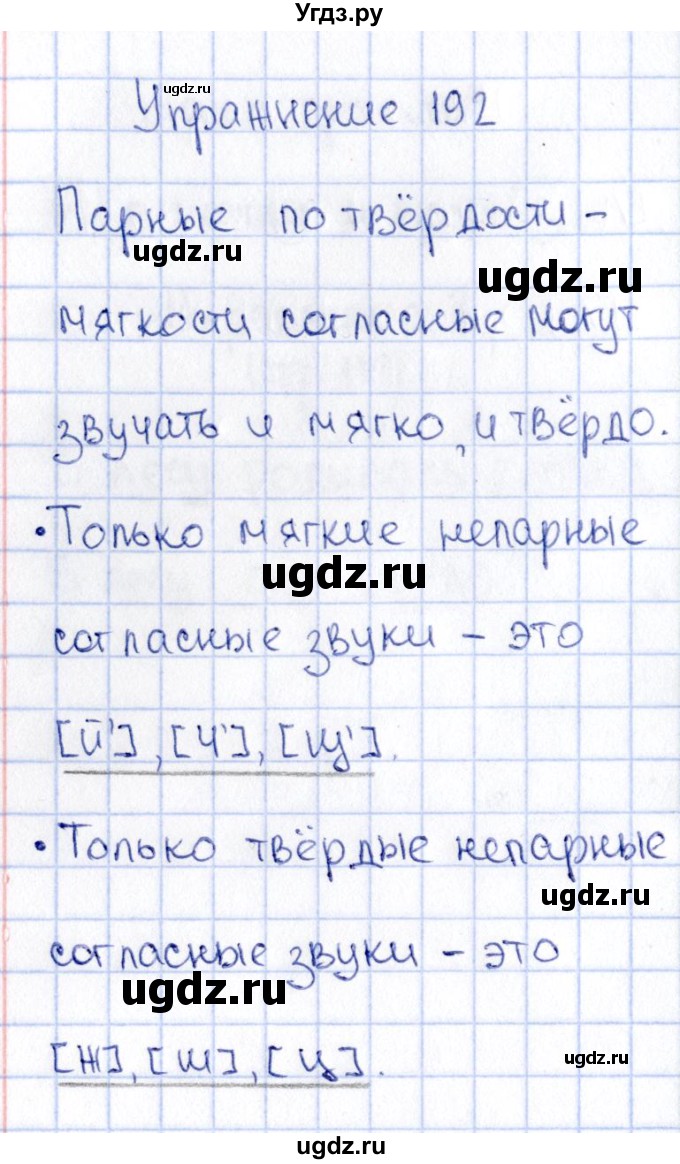 Угдз.ру
ugdz.ru
Упражнение 192
Парные по твёрдости -
ugdz.ru
ugdz.ru
мягкости согласные могут
звучать и мягко, и твёрдо.
• Только мягкие непарные
ugdz.ru
согласные звуки - это
[й'], [ч'], [щ'].
• Только твёрдые непарные
ugdz.ru
согласные звуки - это
ugdz.ru
[ж], [ш], [ц].
ugdz.ru
ugdz.ru